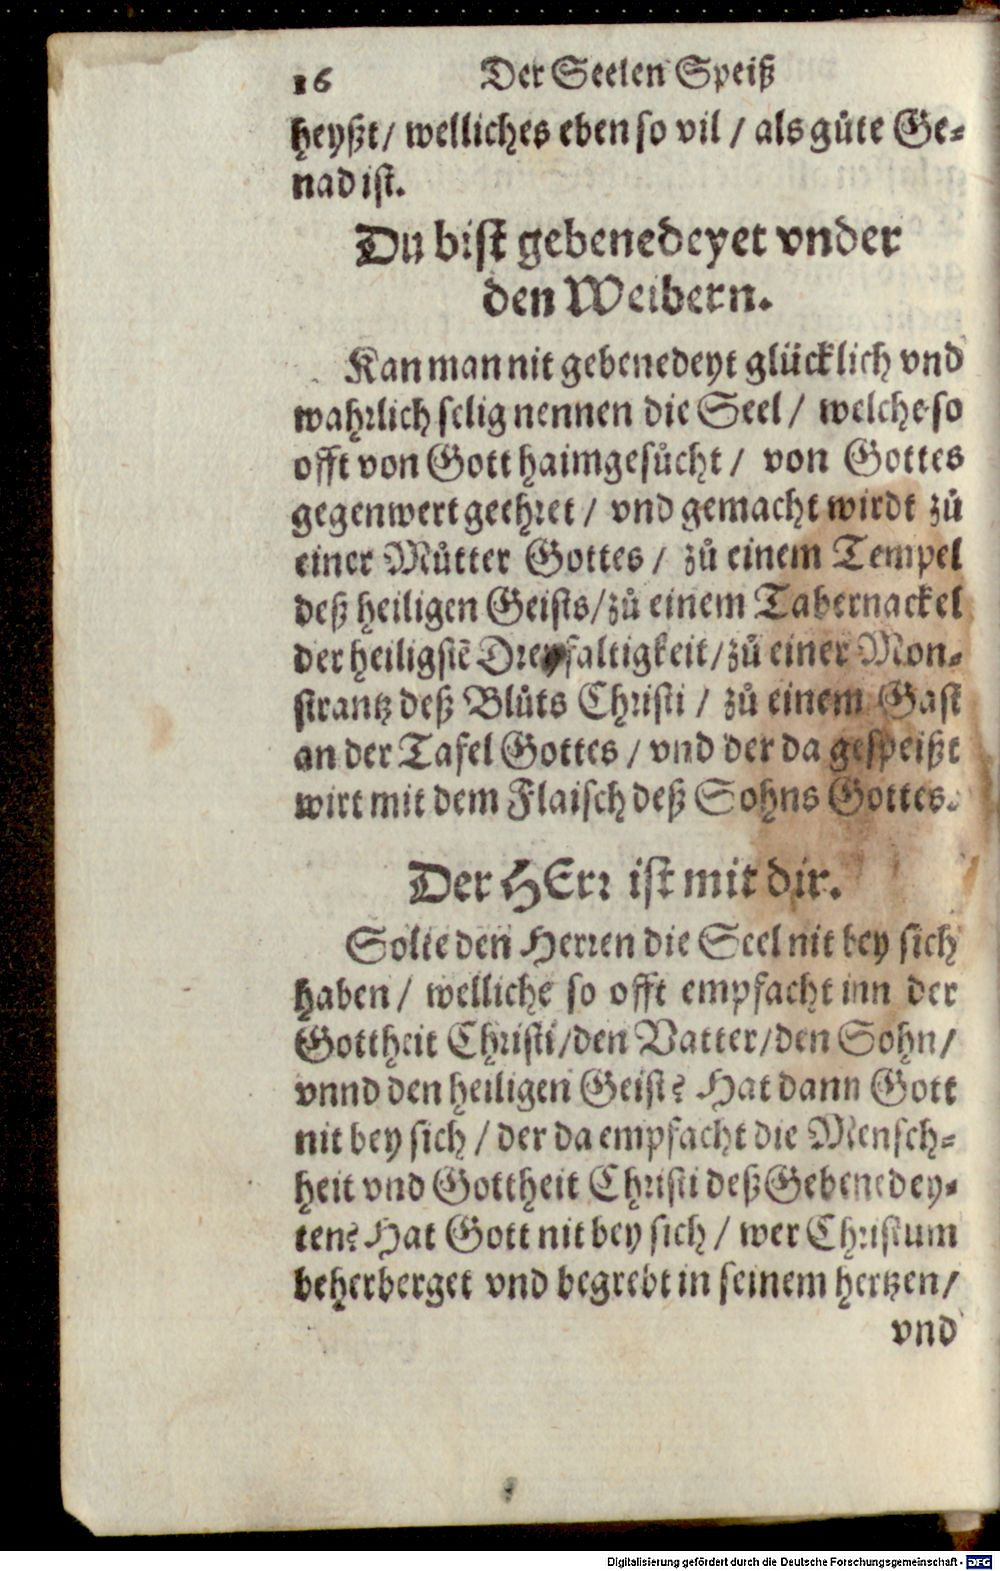 16 Der Seelen Speiß
heyßt/ welliches eben so vil / als gůte Ge⸗
nad ist.
Du bist gebenedeyet vnder
den Weibern.
Kan man nit gebenedeyt glücklich vnd
wahrlich selig nennen die Seel / welche so
offt von Gott haimgesůcht / von Gottes
gegenwert geehret / vnd gemacht wirdt zů
einer Můtter Gottes / zů einem Tempel
deß heiligen Geists/zů einem Tabernackel
der heiligstē Dreyfaltigkeit/zů einer Mon⸗
strantz deß Blůts Christi / zů einem Gast
an der Tafel Gottes / vnd der da gespeißt
wirt mit dem Flaisch deß Sohns Gottes.
Der HErr ist mit dir.
Solte den Herren die Seel nit bey sich
haben / welliche so offt empfacht inn der
Gottheit Christi/den Vatter/den Sohn/
vnnd den heiligen Geist? Hat dann Gott
nit bey sich / der da empfacht die Mensch⸗
heit vnd Gottheit Christi deß Gebenedey⸗
ten? Hat Gott nit bey sich / wer Christum
beherberget vnd begrebt in seinem hertzen/
vnd
Digitalisierung gefördert durch die Deutsche Forschungsgemeinschaft - DFG